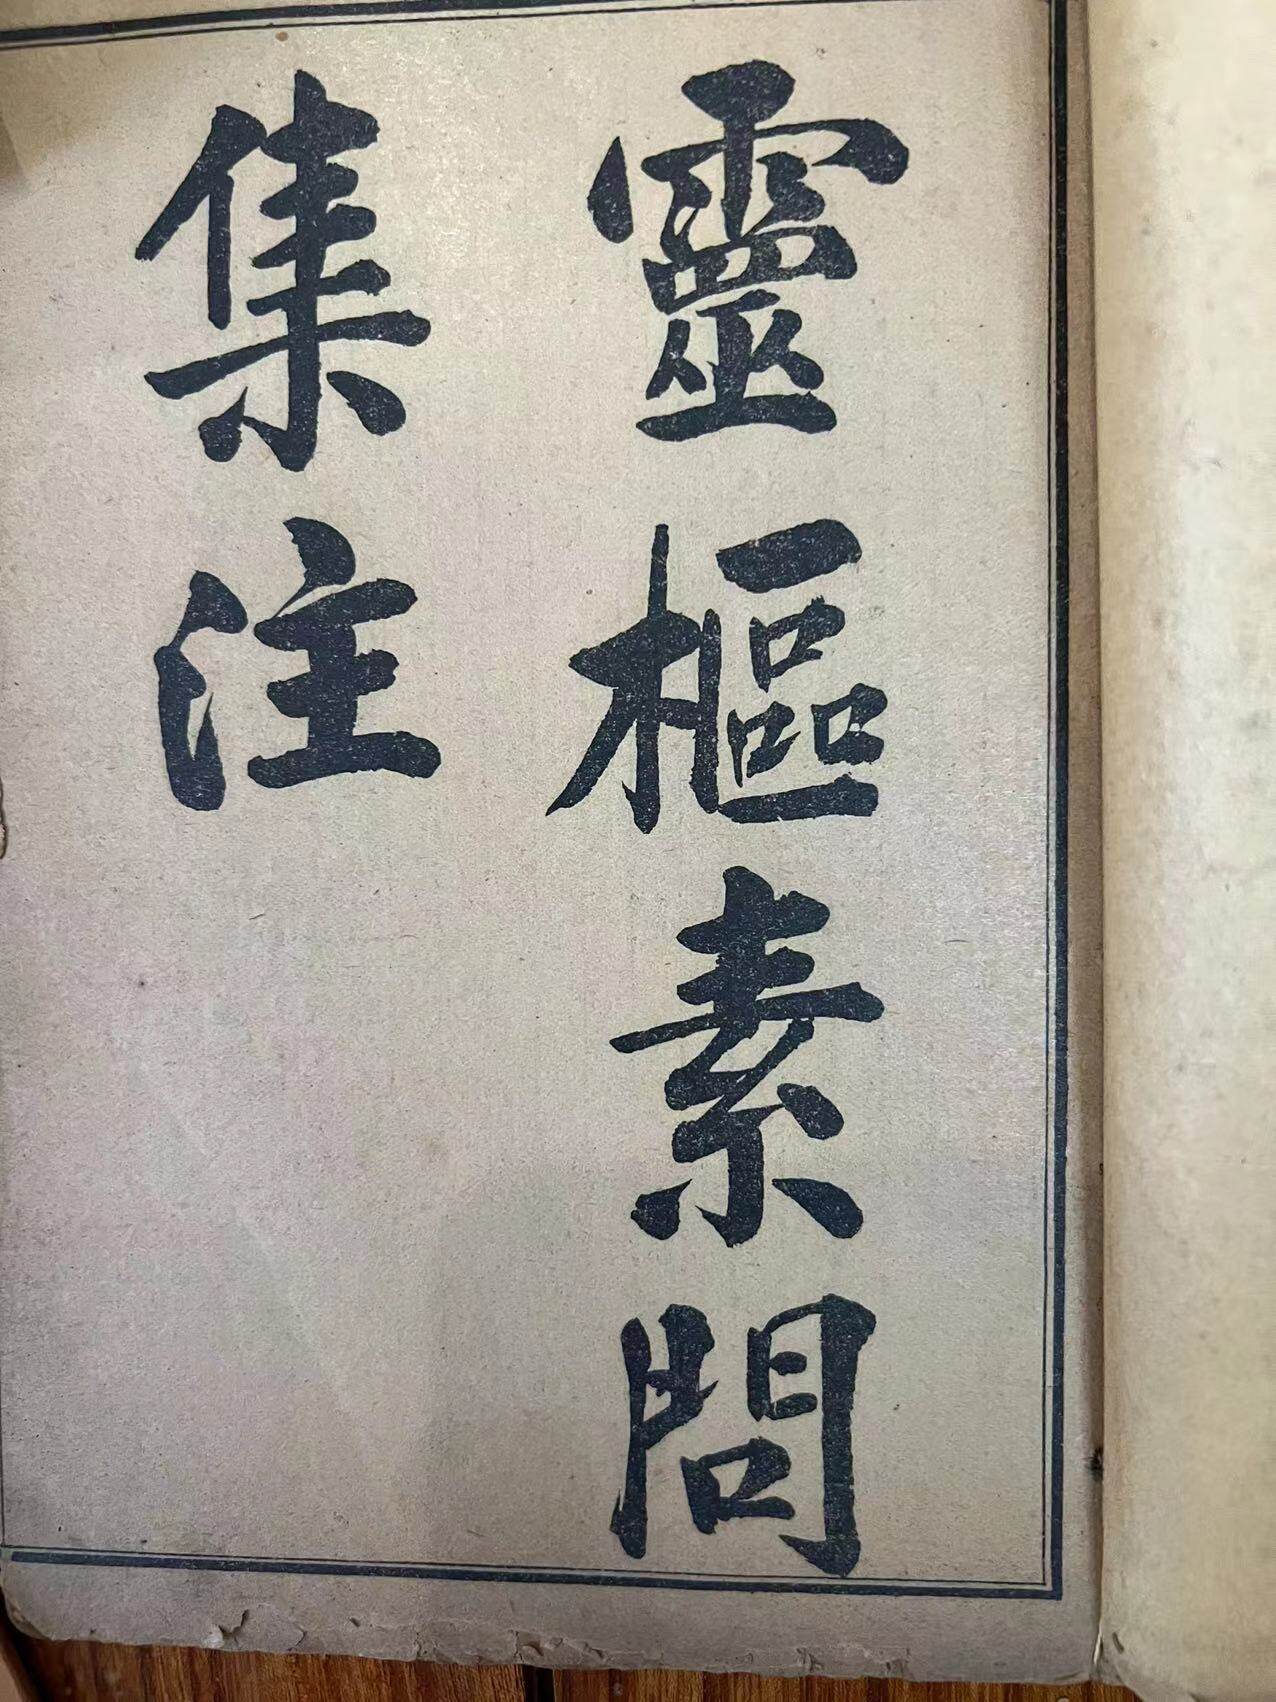 靈樞素問
集注